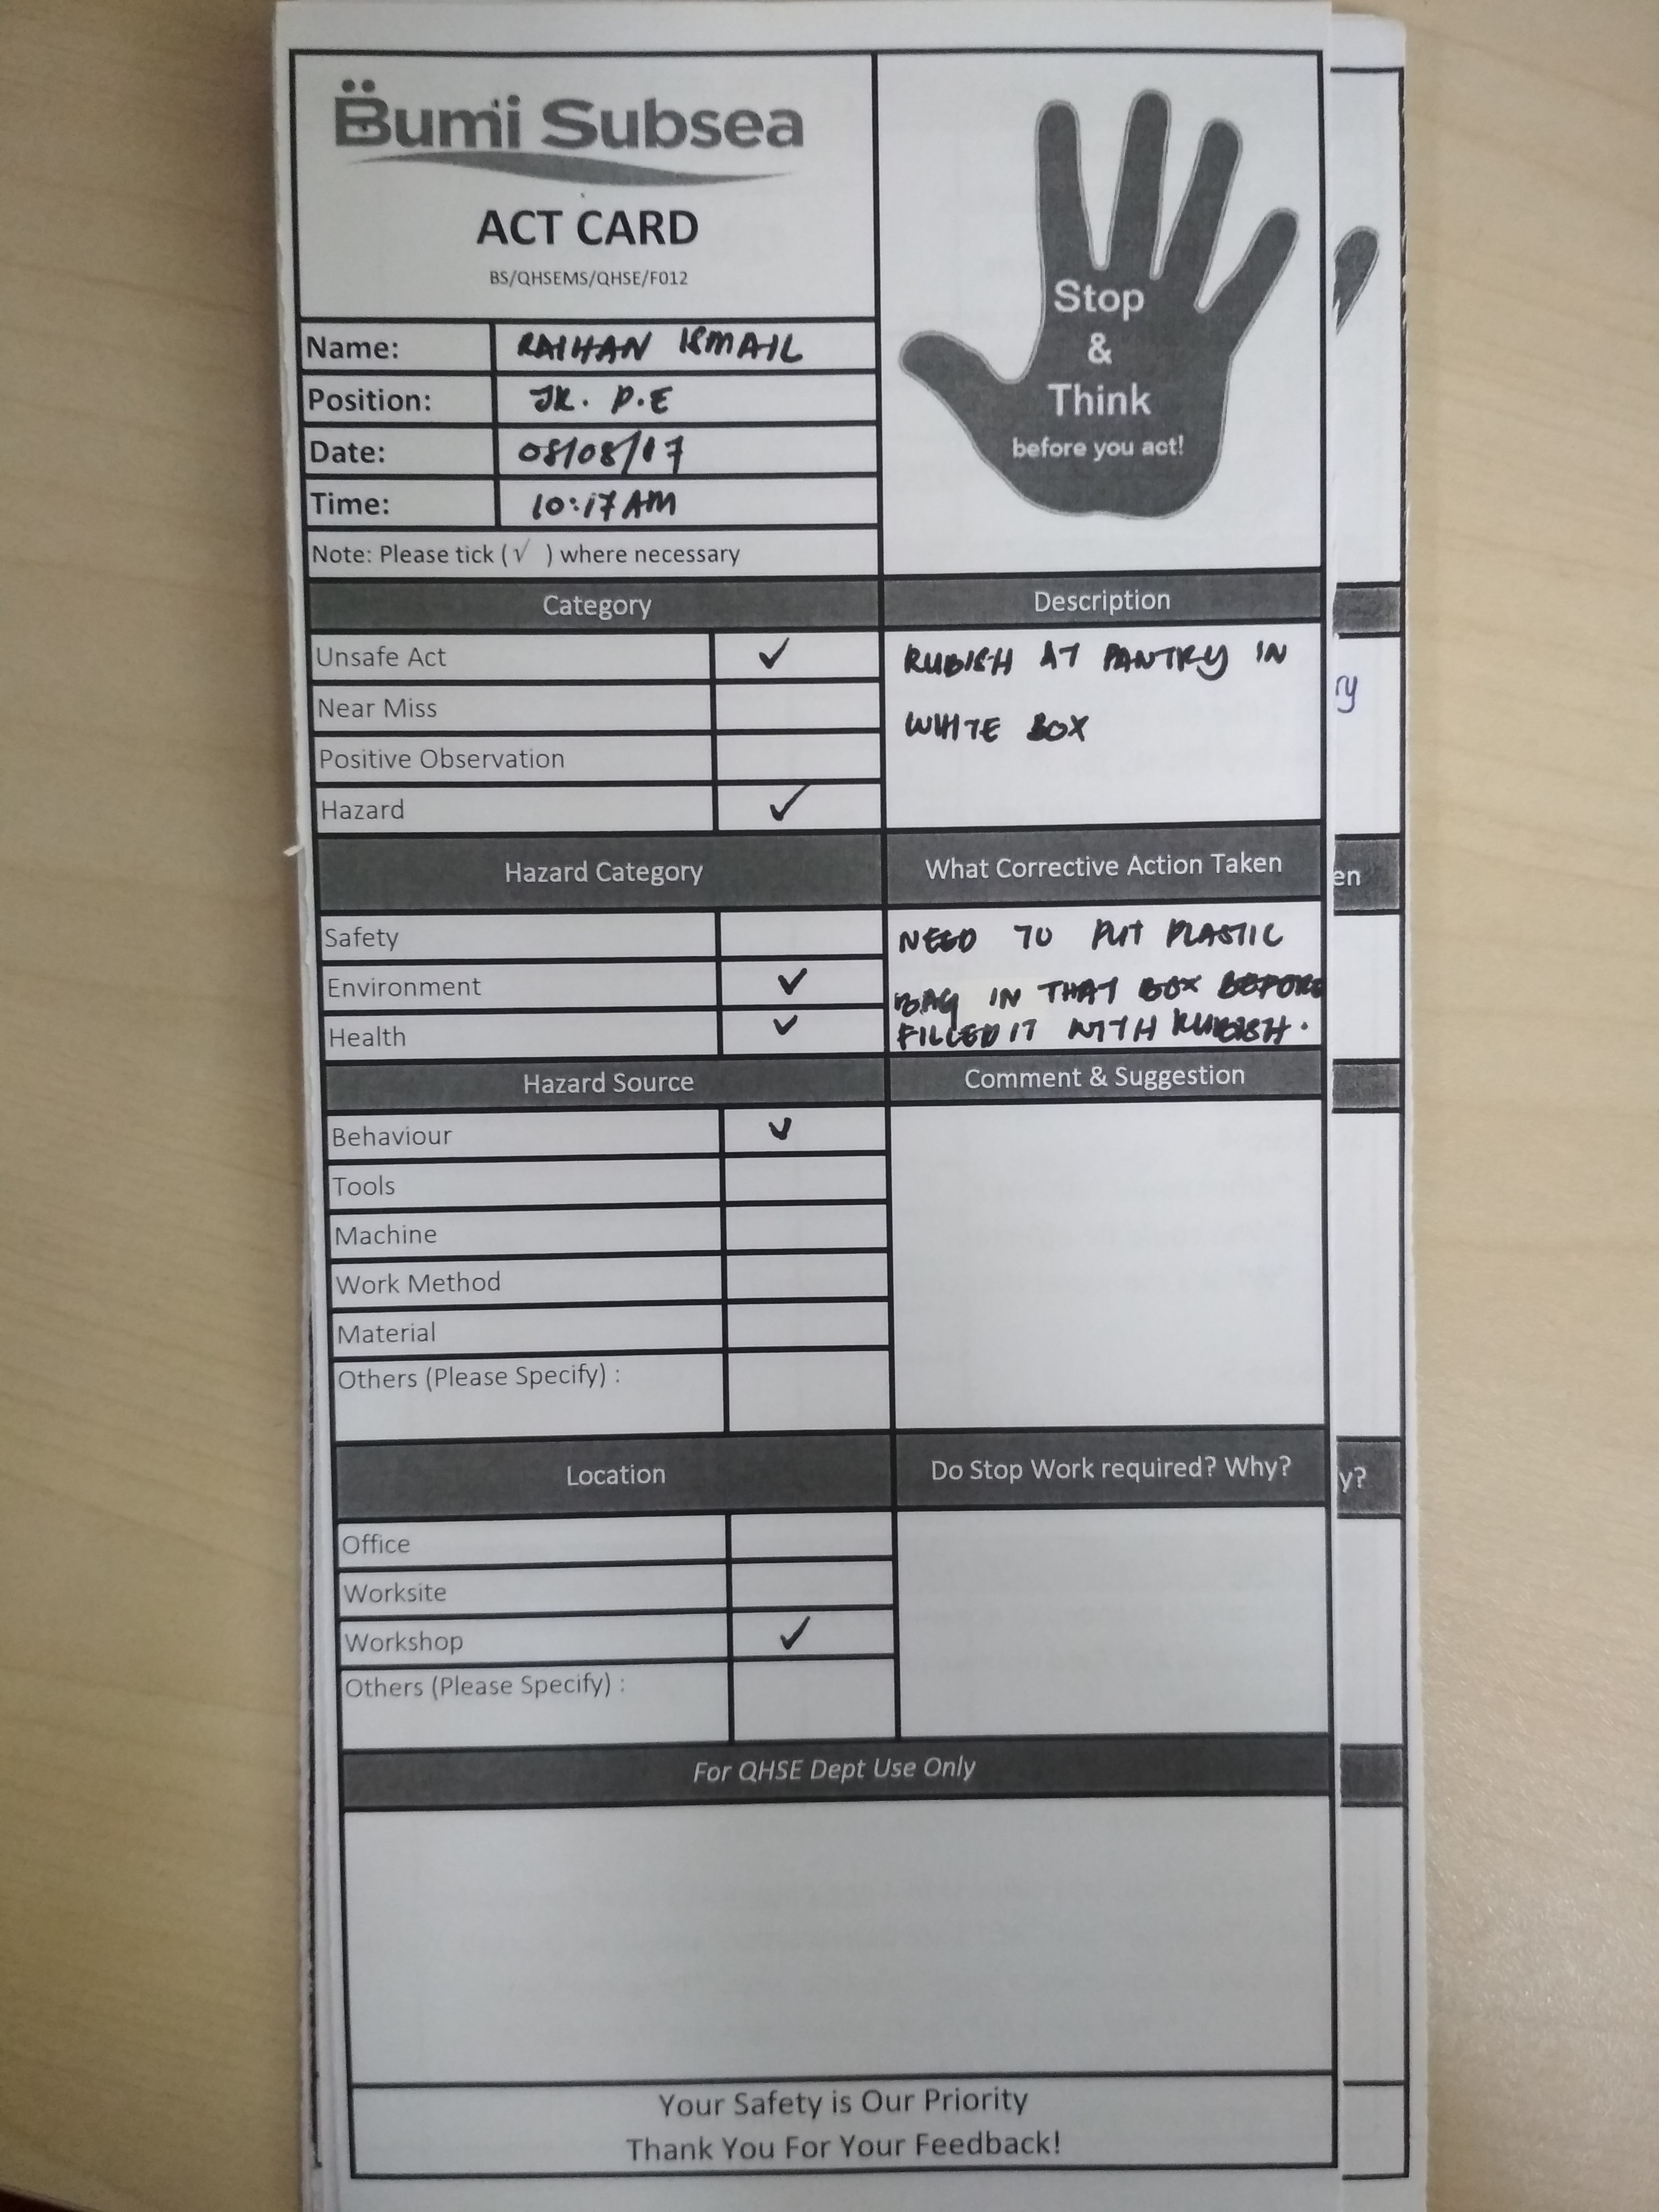 Bumi Subsea
ACT CARD
BS/QHSEMS/QHSE/F012
Stop
&
Think
before you act!
Name: RAIHAN ISMAIL
Position: JR. P.E
Date: 08/08/17
Time: 10:17 AM
Note: Please tick ( √ ) where necessary
Category
Unsafe Act ✓
Near Miss
Positive Observation
Hazard ✓
Description
RUBISH AT PANTRY IN
WHITE BOX
Hazard Category
Safety
Environment ✓
Health ✓
What Corrective Action Taken
NEED TO PUT PLASTIC
BAG IN THAT BOX BEFORE
FILLED IT WITH RUBISH.
Hazard Source
Behaviour ✓
Tools
Machine
Work Method
Material
Others (Please Specify) :
Comment & Suggestion
Location
Office
Worksite
Workshop ✓
Others (Please Specify) :
Do Stop Work required? Why?
For QHSE Dept Use Only
Your Safety is Our Priority
Thank You For Your Feedback!
ry
en
y?